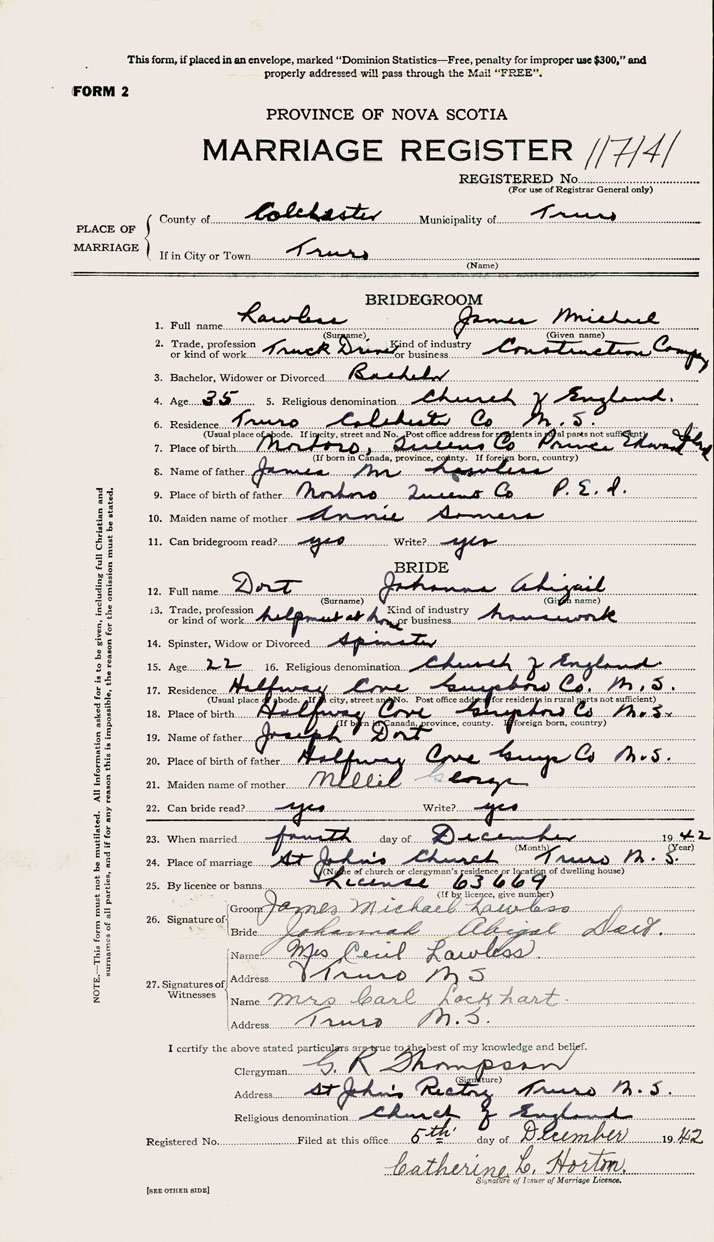 This form, if placed in an envelope, marked "Dominion Statistics—Free, penalty for improper use $300," and
properly addressed will pass through the Mail "FREE".
FORM 2
PROVINCE OF NOVA SCOTIA
MARRIAGE REGISTER 11741
REGISTERED No.
(For use of Registrar General only)
PLACE OF MARRIAGE
County of Colchester Municipality of Truro
If in City or Town Truro
(Name)
BRIDEGROOM
1. Full name Lawless James Michael
(Surname) (Given name)
2. Trade, profession or kind of work Truck Driver Kind of industry or business Construction Company
3. Bachelor, Widower or Divorced Bachelor
4. Age 35 5. Religious denomination Church of England.
6. Residence Truro Colchester Co N.S.
(Usual place of abode. If in city, street and No. Post office address for residents in rural parts not sufficient)
7. Place of birth Norboro, Queens Co Prince Edward Island
(If born in Canada, province, county. If foreign born, country)
8. Name of father James M Lawless
9. Place of birth of father Norboro Queens Co P.E.I.
10. Maiden name of mother Annie Somers
11. Can bridegroom read? yes Write? yes
BRIDE
12. Full name Dort Johanna Abigail
(Surname) (Given name)
13. Trade, profession or kind of work help out at home Kind of industry or business housework
14. Spinster, Widow or Divorced Spinster
15. Age 22 16. Religious denomination Church of England
17. Residence Halfway Cove Guysboro Co. N.S.
(Usual place of abode. If in city, street and No. Post office address for residents in rural parts not sufficient)
18. Place of birth Halfway Cove Guysboro Co N.S.
(If born in Canada, province, county. If foreign born, country)
19. Name of father Joseph Dort
20. Place of birth of father Halfway Cove Guys Co N.S.
21. Maiden name of mother Nellie George
22. Can bride read? yes Write? yes
23. When married fourth day of December 1942
(Month) (Year)
24. Place of marriage St John's Church Truro N.S.
(Name of church or clergyman's residence or location of dwelling house)
25. By licence or banns License 63669
(If by licence, give number)
26. Signature of
Groom James Michael Lawless
Bride Johannah Abigal Dort.
27. Signatures of Witnesses
Name Mrs Cecil Lawless
Address Truro N S
Name Mrs Carl Lockhart.
Address Truro N.S.
I certify the above stated particulars are true to the best of my knowledge and belief.
Clergyman G. R Thompson
(Signature)
Address St John's Rectory Truro N.S.
Religious denomination Church of England
Registered No. Filed at this office 5th day of December 1942
Catherine L. Horton.
Signature of Issuer of Marriage Licence.
[SEE OTHER SIDE]
NOTE.—This form must not be mutilated. All information asked for is to be given, including full Christian and
surnames of all parties, and if for any reason this is impossible, the reason for the omission must be stated.